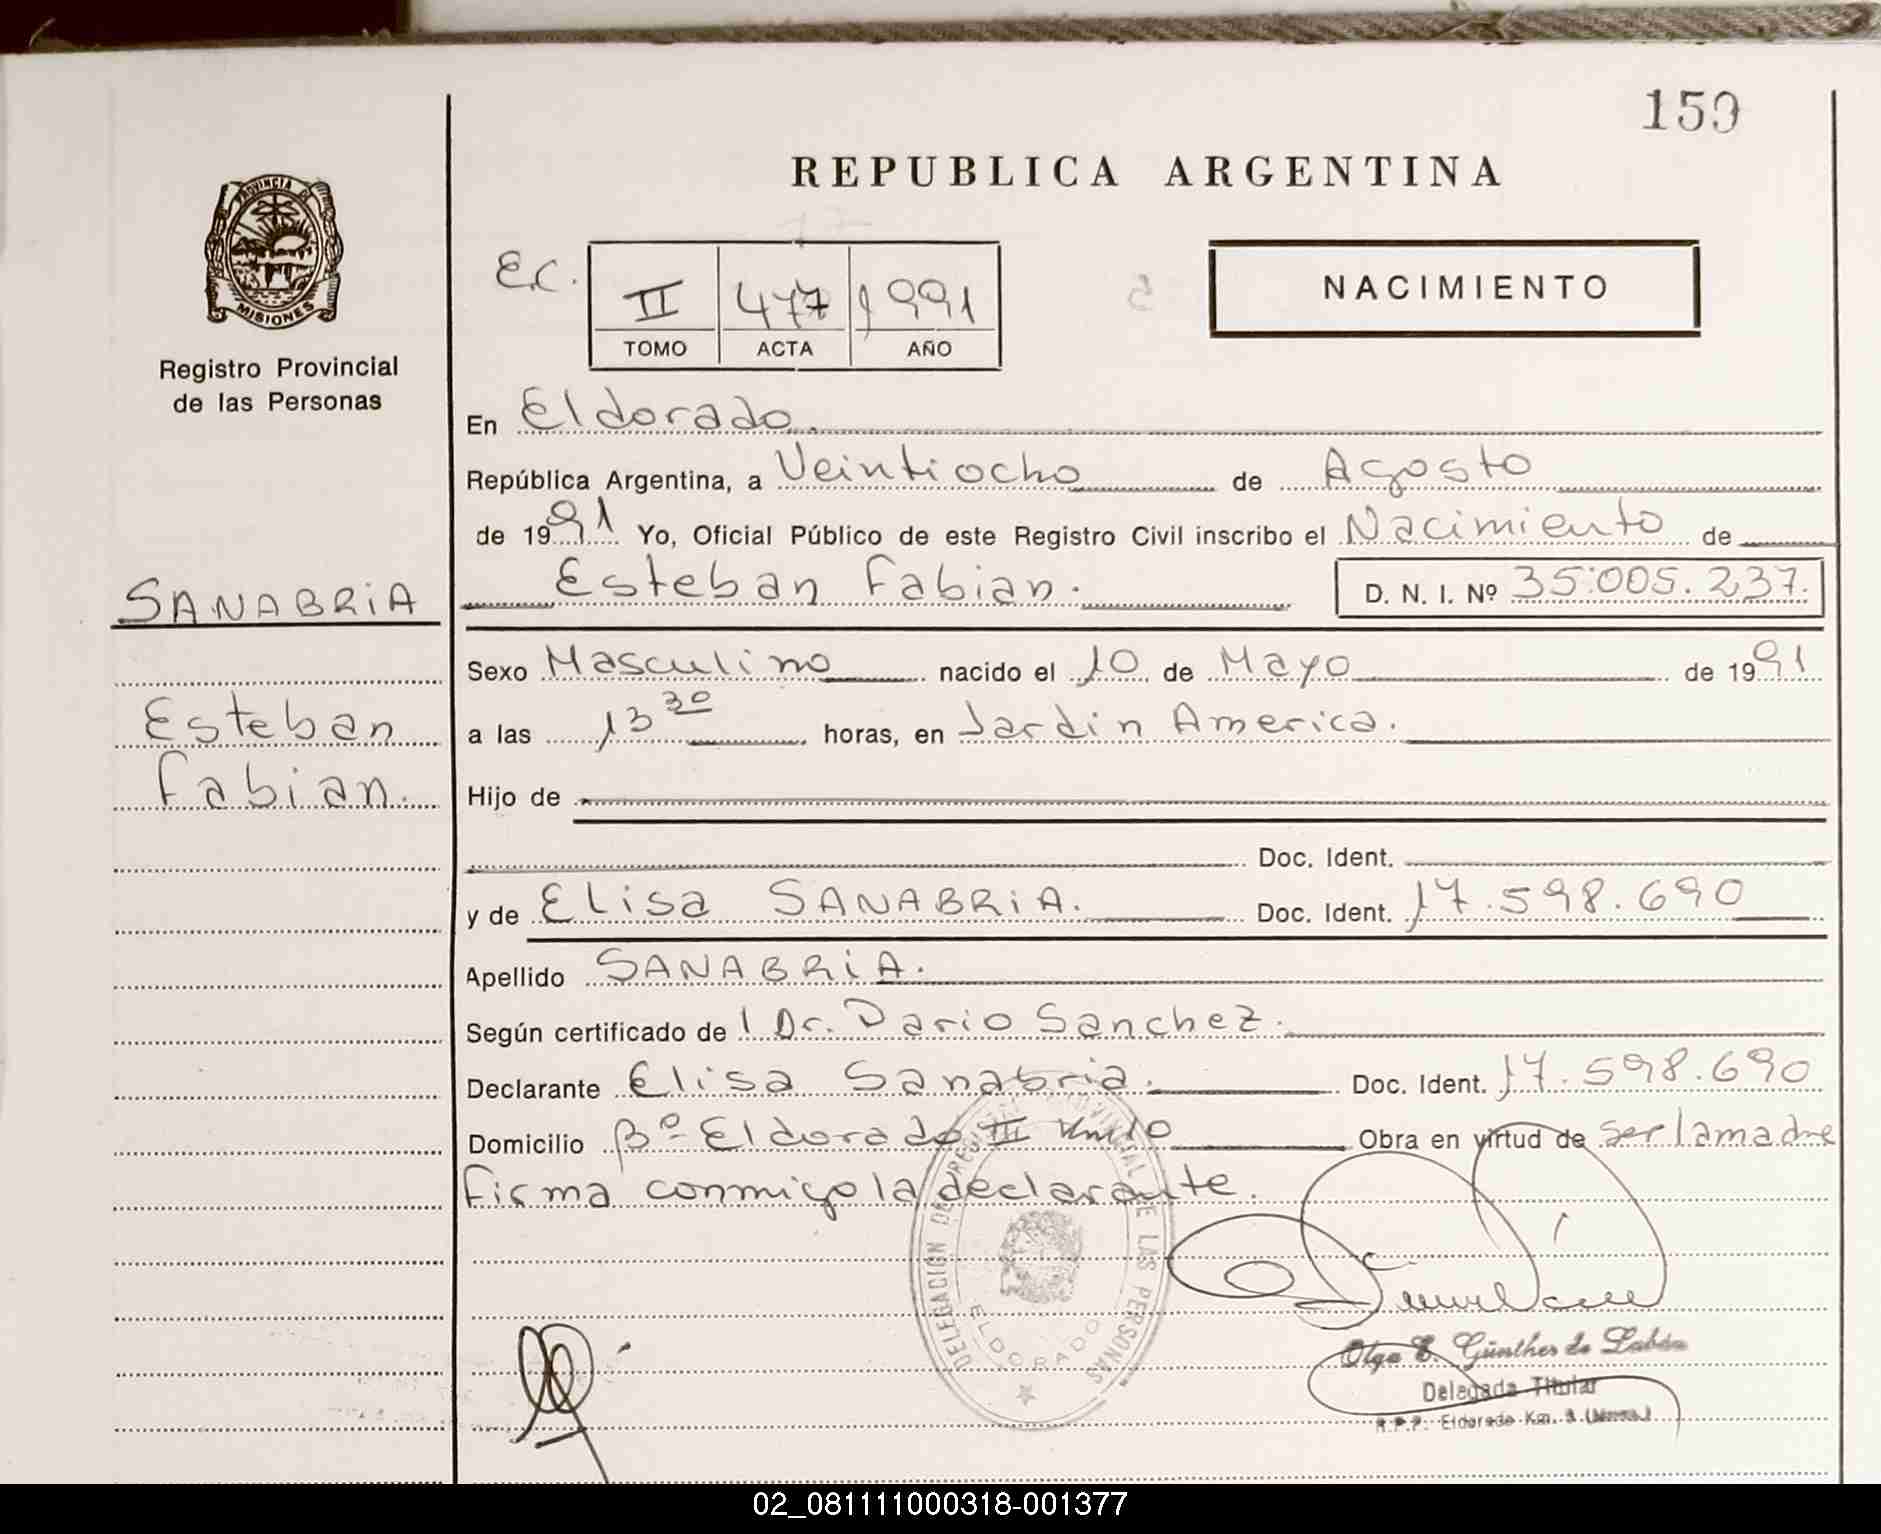 159
REPUBLICA ARGENTINA
PROVINCIA DE
MISIONES
Registro Provincial
de las Personas
E.C.
II 477 1991
TOMO ACTA AÑO
NACIMIENTO
En Eldorado.
República Argentina, a Veintiocho de Agosto
de 1991 Yo, Oficial Público de este Registro Civil inscribo el Nacimiento de
SANABRiA
Esteban Fabian. D. N. I. Nº 35.005.237.
Sexo Masculino nacido el 10 de Mayo de 1991
Esteban
a las 13 30 horas, en Jardin America.
Fabian.
Hijo de
Doc. Ident.
y de Elisa SANABRiA. Doc. Ident. 17.598.690
Apellido SANABRiA.
Según certificado de l Dr. Dario Sanchez.
Declarante Elisa Sanabria. Doc. Ident. 17.598.690
Domicilio Bº Eldorado III Km 10 Obra en virtud de ser la madre
Firma conmigo la declarante.
DELEGACION DEL REGISTRO PROVINCIAL DE LAS PERSONAS
ELDORADO
Olga E. Günther de Labán
Delegada Titular
R.P.P. Eldorado Km. 9 (Mnes.)
02_081111000318-001377